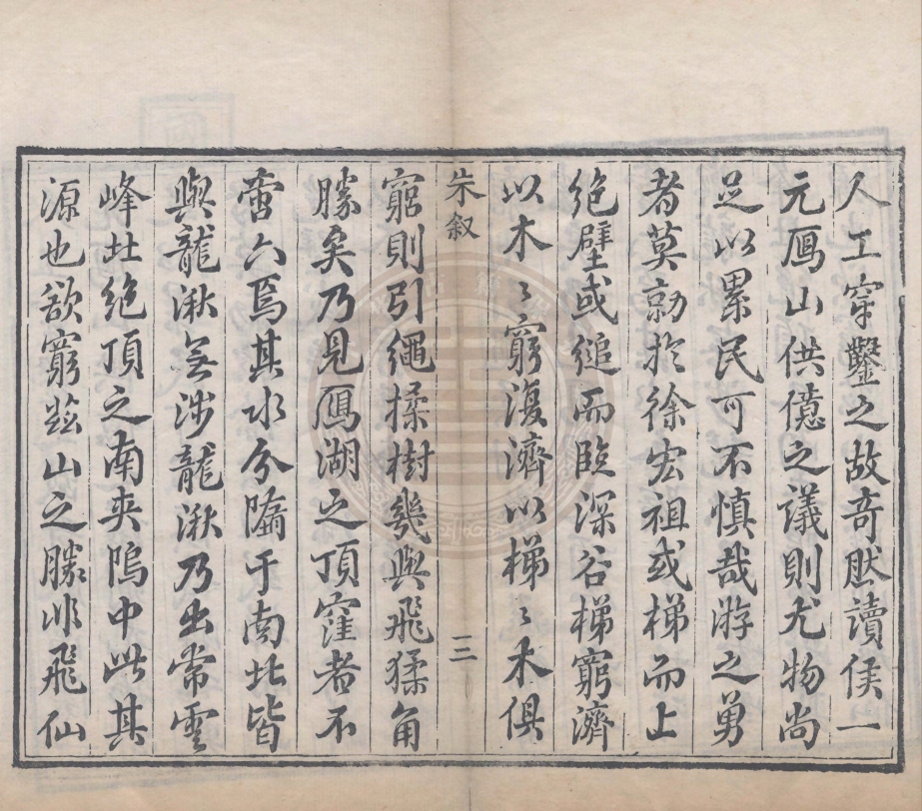 人工穿鑿之故奇狀讀侯一
元鴈山供億之議則尤物尚
足以累民可不慎哉游之勇
者莫勍於徐宏祖或梯而上
絶壁或縋而臨深谷梯窮濟
以木〻窮復濟以梯〻木俱
朱叙
三
窮則引繩揉樹幾與飛猱角
勝矣乃見鴈湖之頂窪者不
啻六焉其水分隔于南北皆
與龍湫無涉龍湫乃出常雲
峰北絶頂之南夾塢中此其
源也欲窮茲山之勝非飛仙